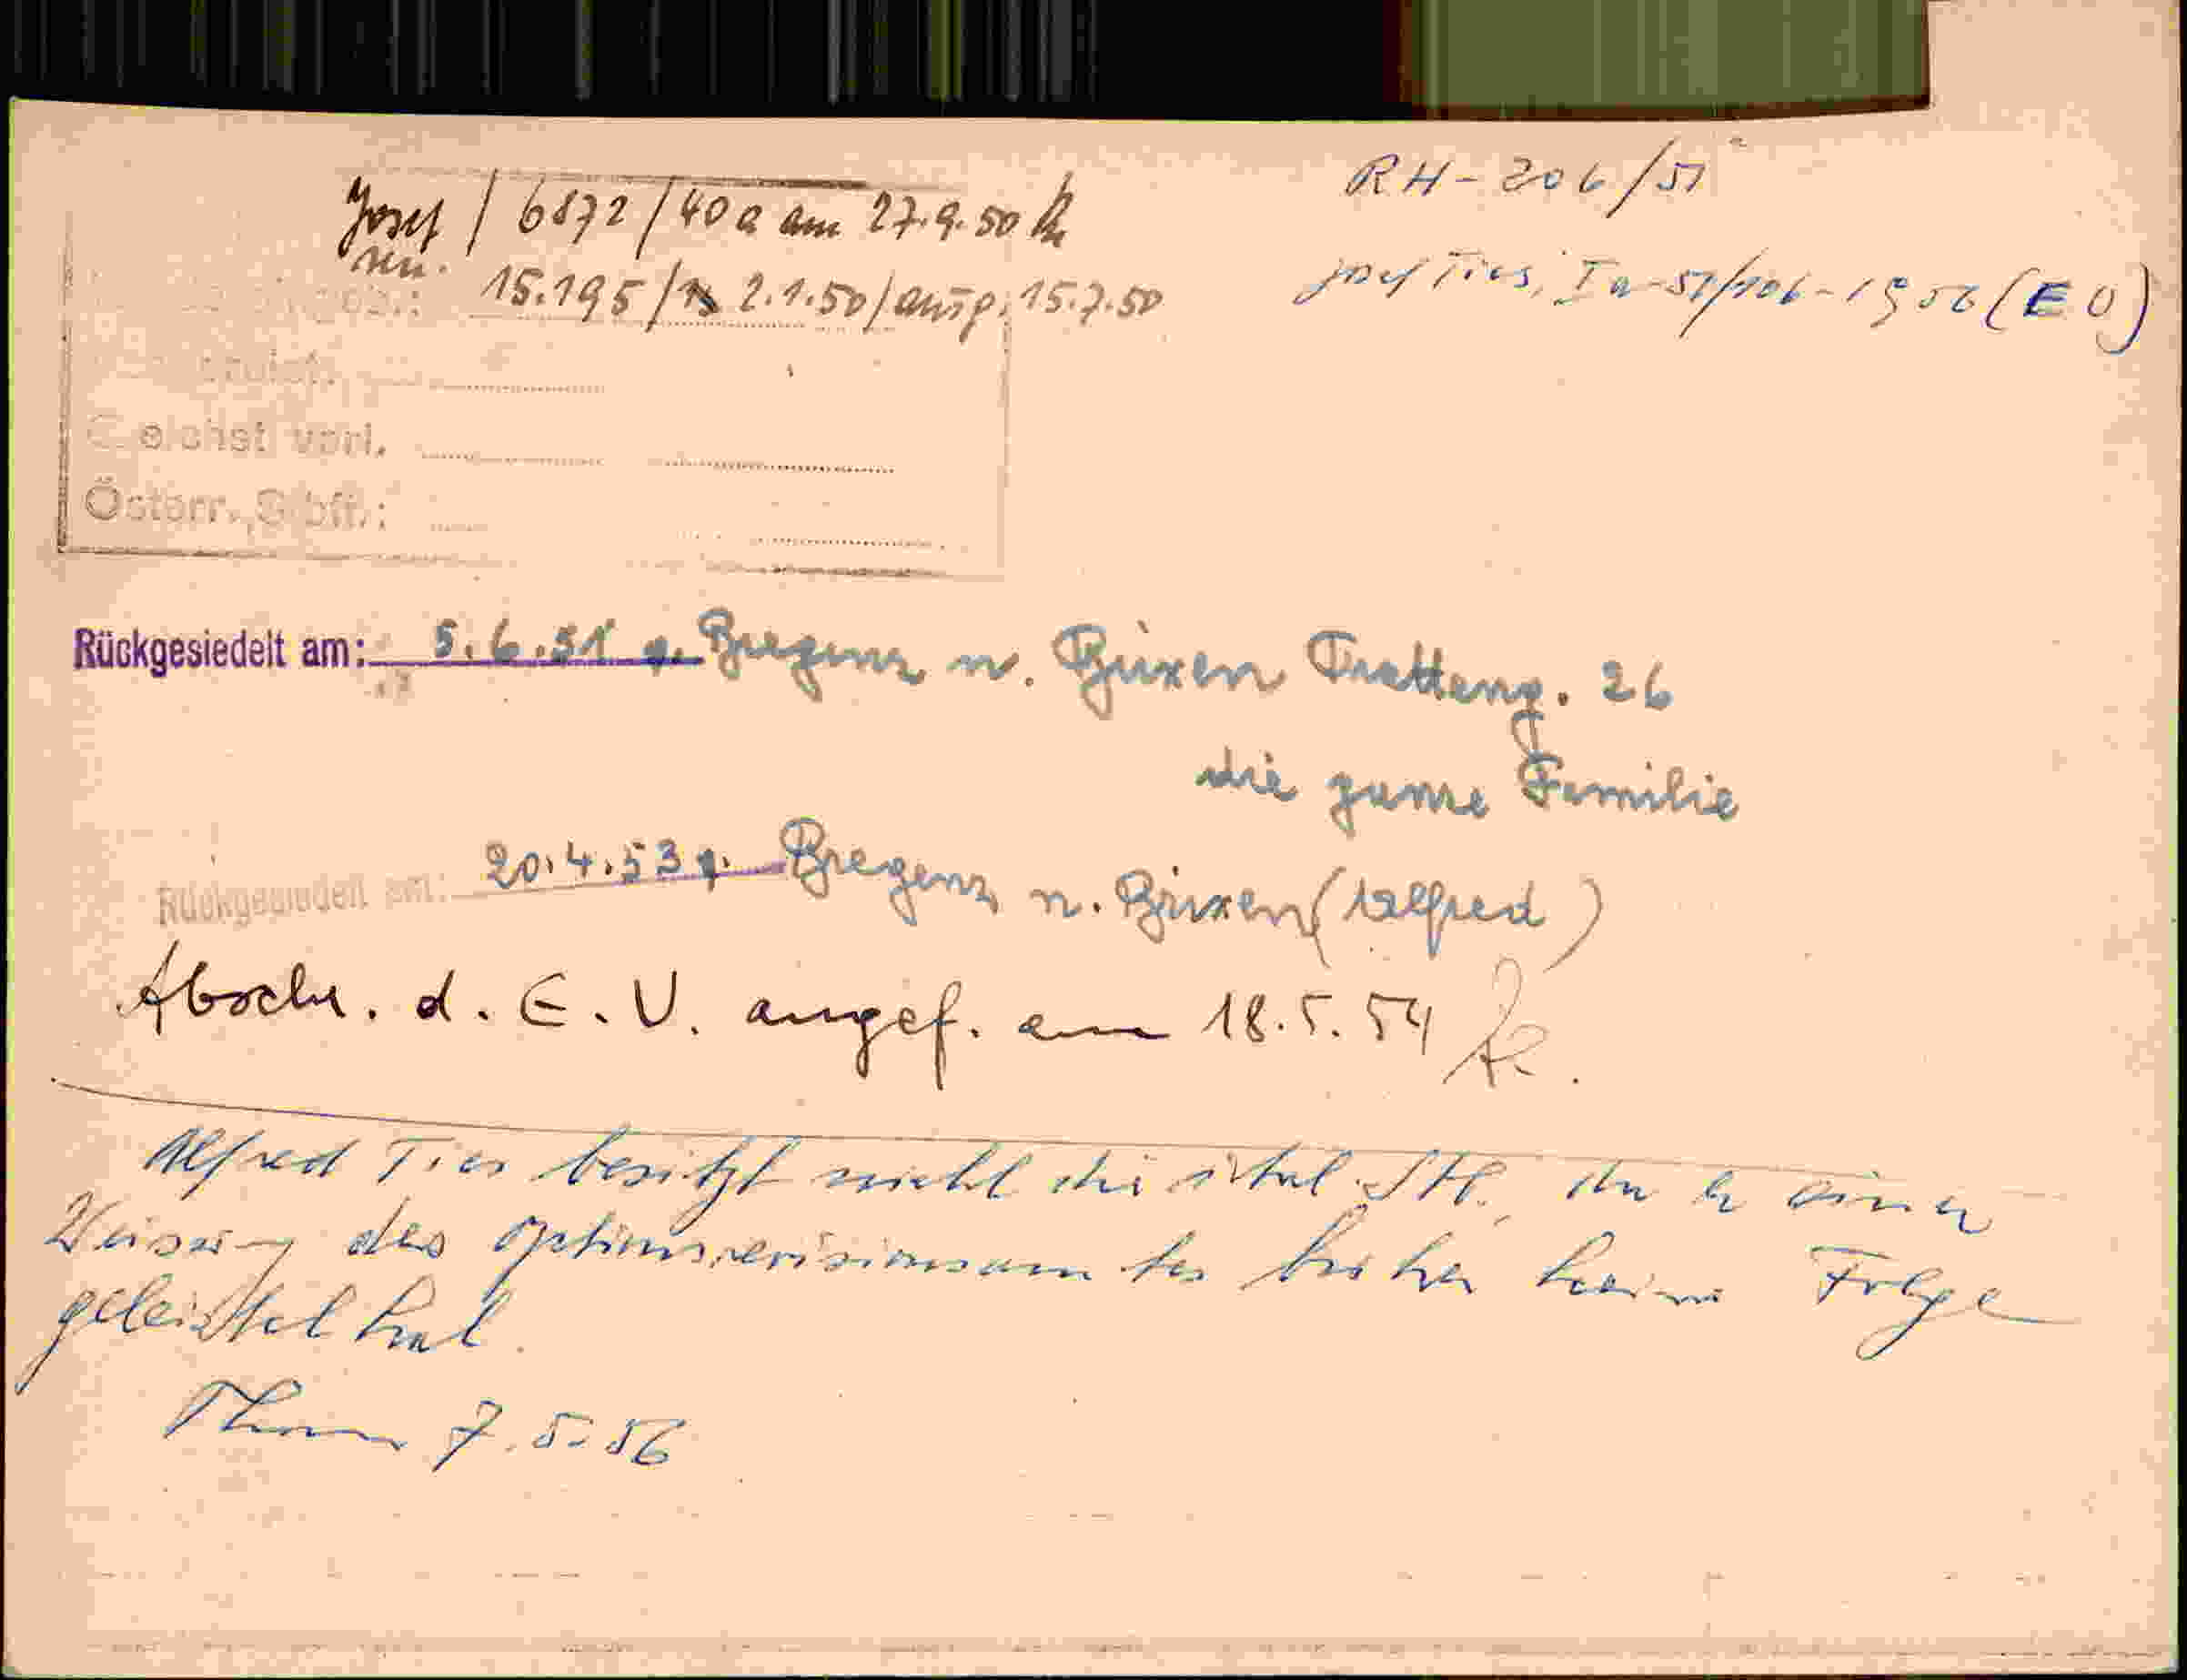 RH-206/51
Josef / 6872/40 a am 27.9.50
sen.
15.195/ 2.1.50/ausg. 15.7.50
Josef Ties, Ia-57/106-1956 (EO)
Österr.
Rückgesiedelt am: 5.6.51 v. Bregenz n. Brixen Tratteng. 26
die ganze Familie
Rückgesiedelt am: 20.4.53 v. Bregenz n. Brixen (Alfred)
Abschr. d. E.V. angef. am 18.5.54
Alfred Ties besitzt nicht die ital. Stb., da er einer
Weisung des Optionsrevisionsamtes bisher keine Folge
geleistet hat.
7.5.56